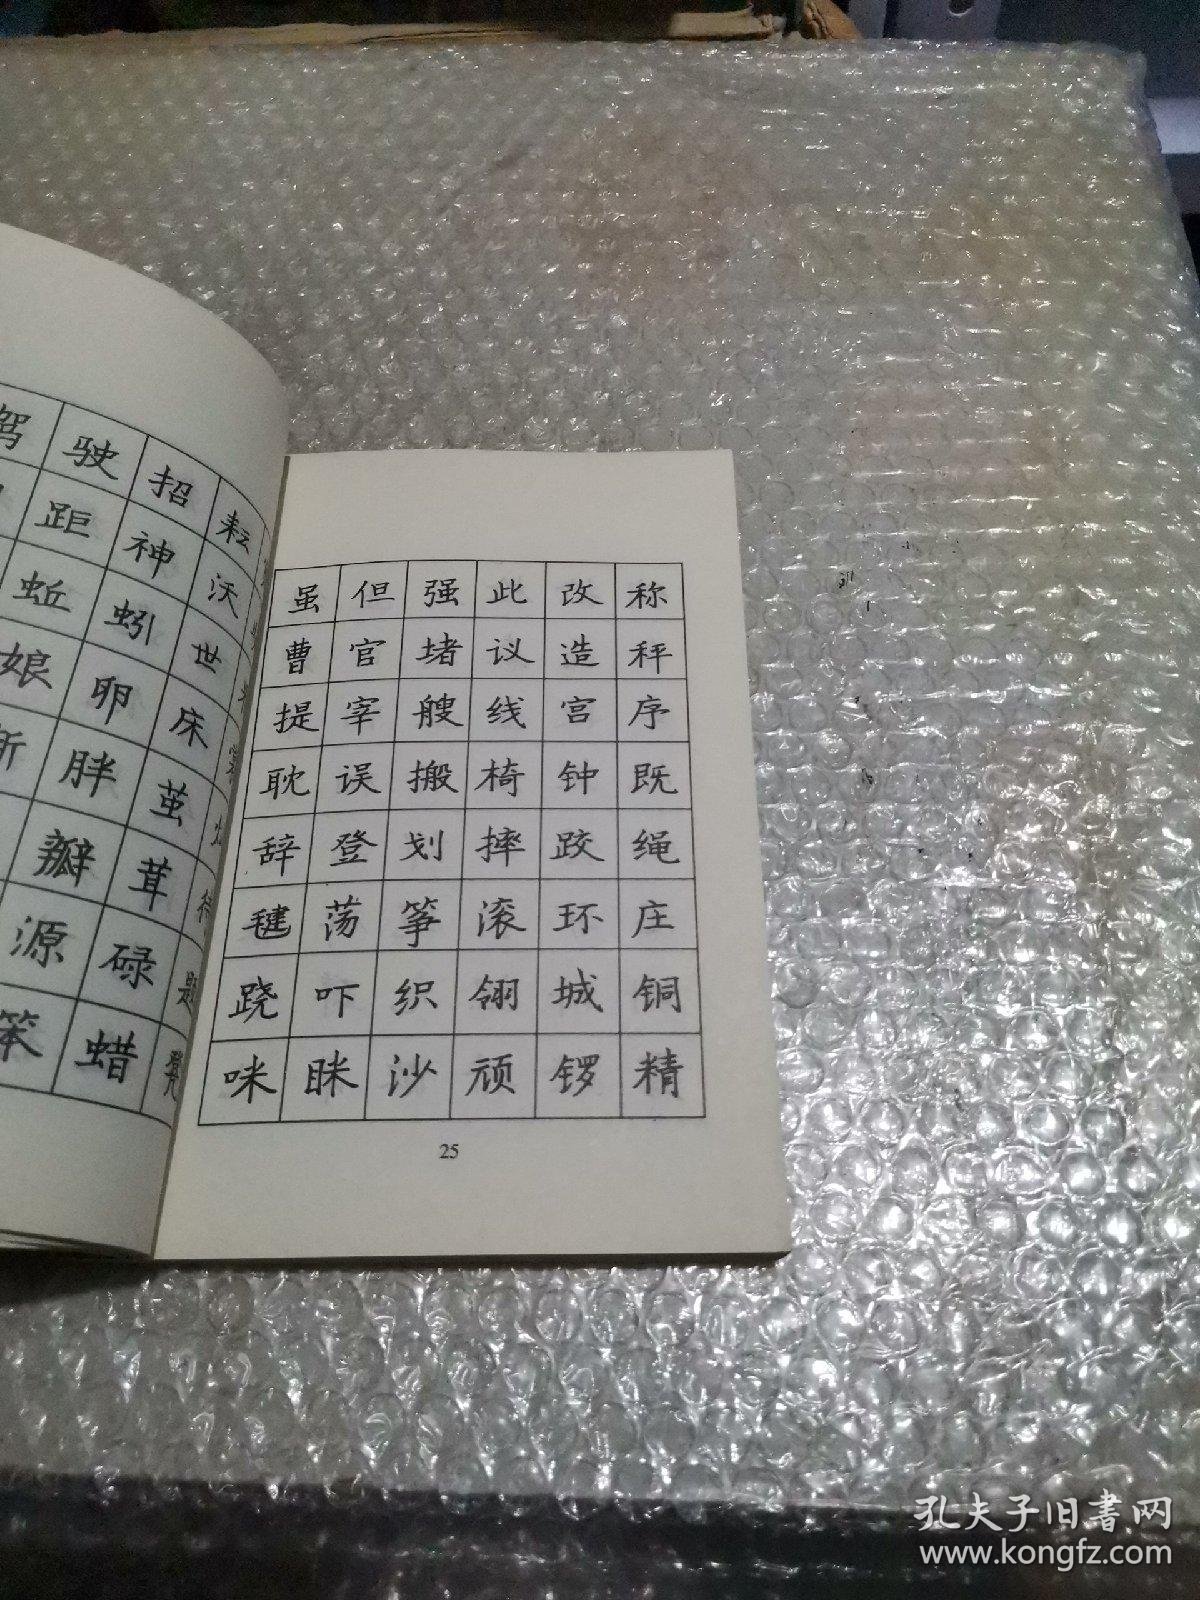 驾 驶 招 耘
距 神 沃
蚯 蚓 世
娘 卵 床
胖 茧
瓣 茸
源 碌
笨 蜡
虽 但 强 此 改 称
曹 官 堵 议 造 秤
提 宰 艘 线 宫 序
耽 误 搬 椅 钟 既
辞 登 划 摔 跤 绳
毽 荡 筝 滚 环 庄
跷 吓 织 翎 城 铜
咪 眯 沙 顽 锣 精
25
孔夫子旧書网
www.kongfz.com